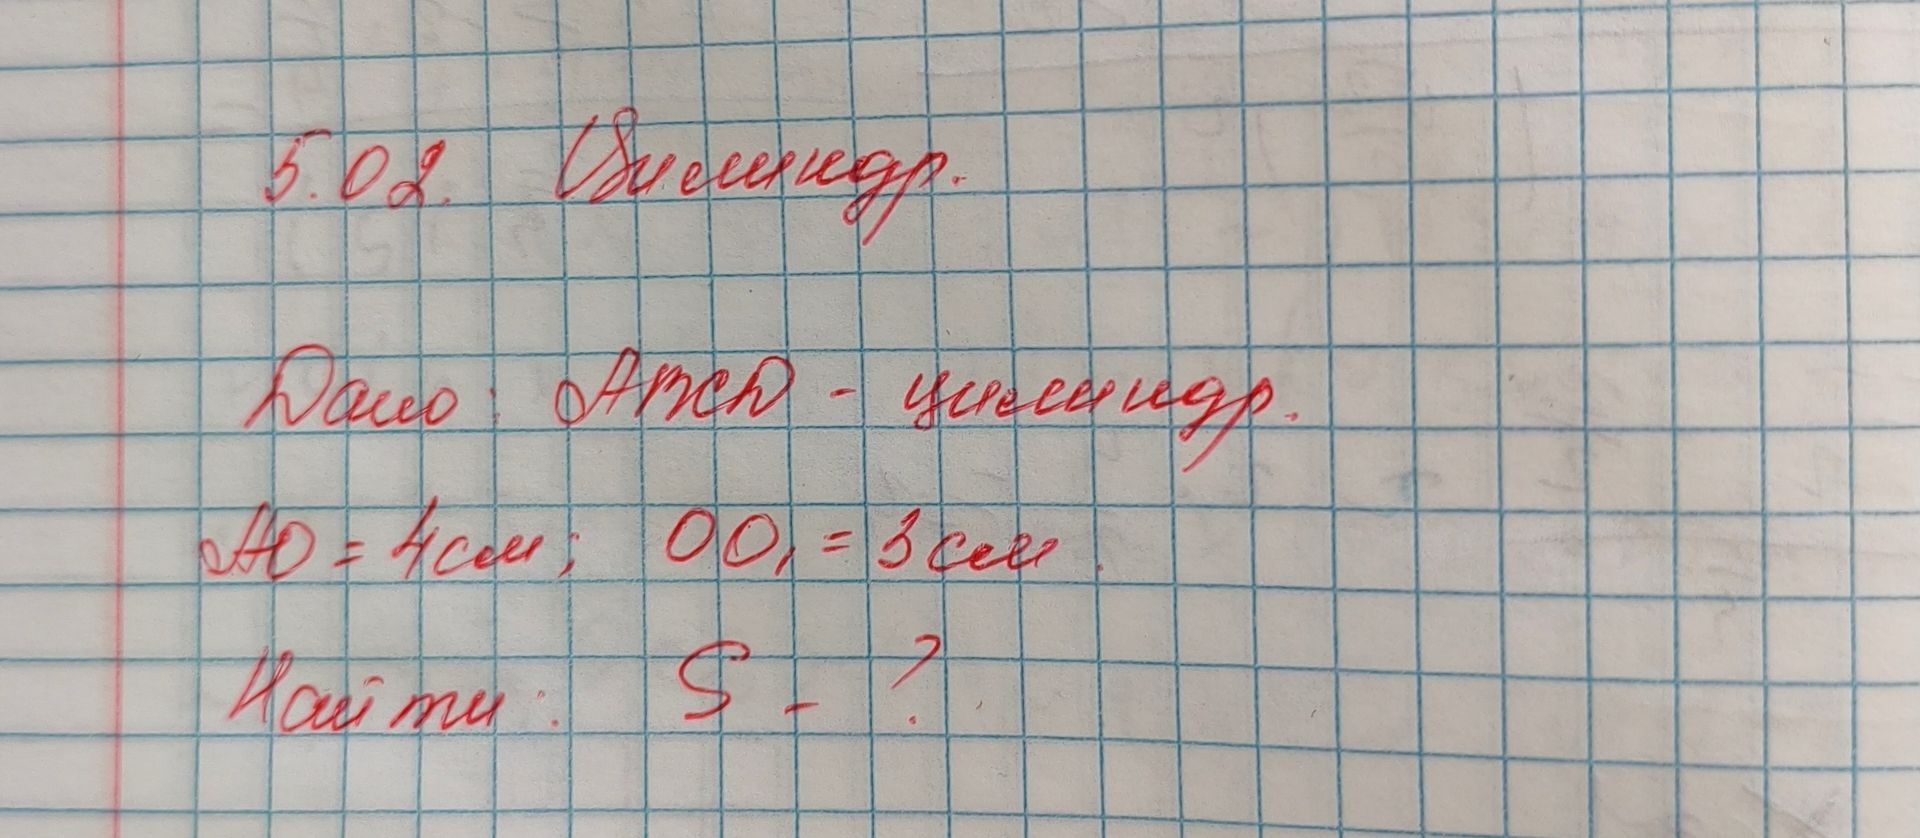 5.02. Цилиндр.
Дано: ABCD - цилиндр.
AO = 4см; OO₁ = 3см.
Найти: S - ?